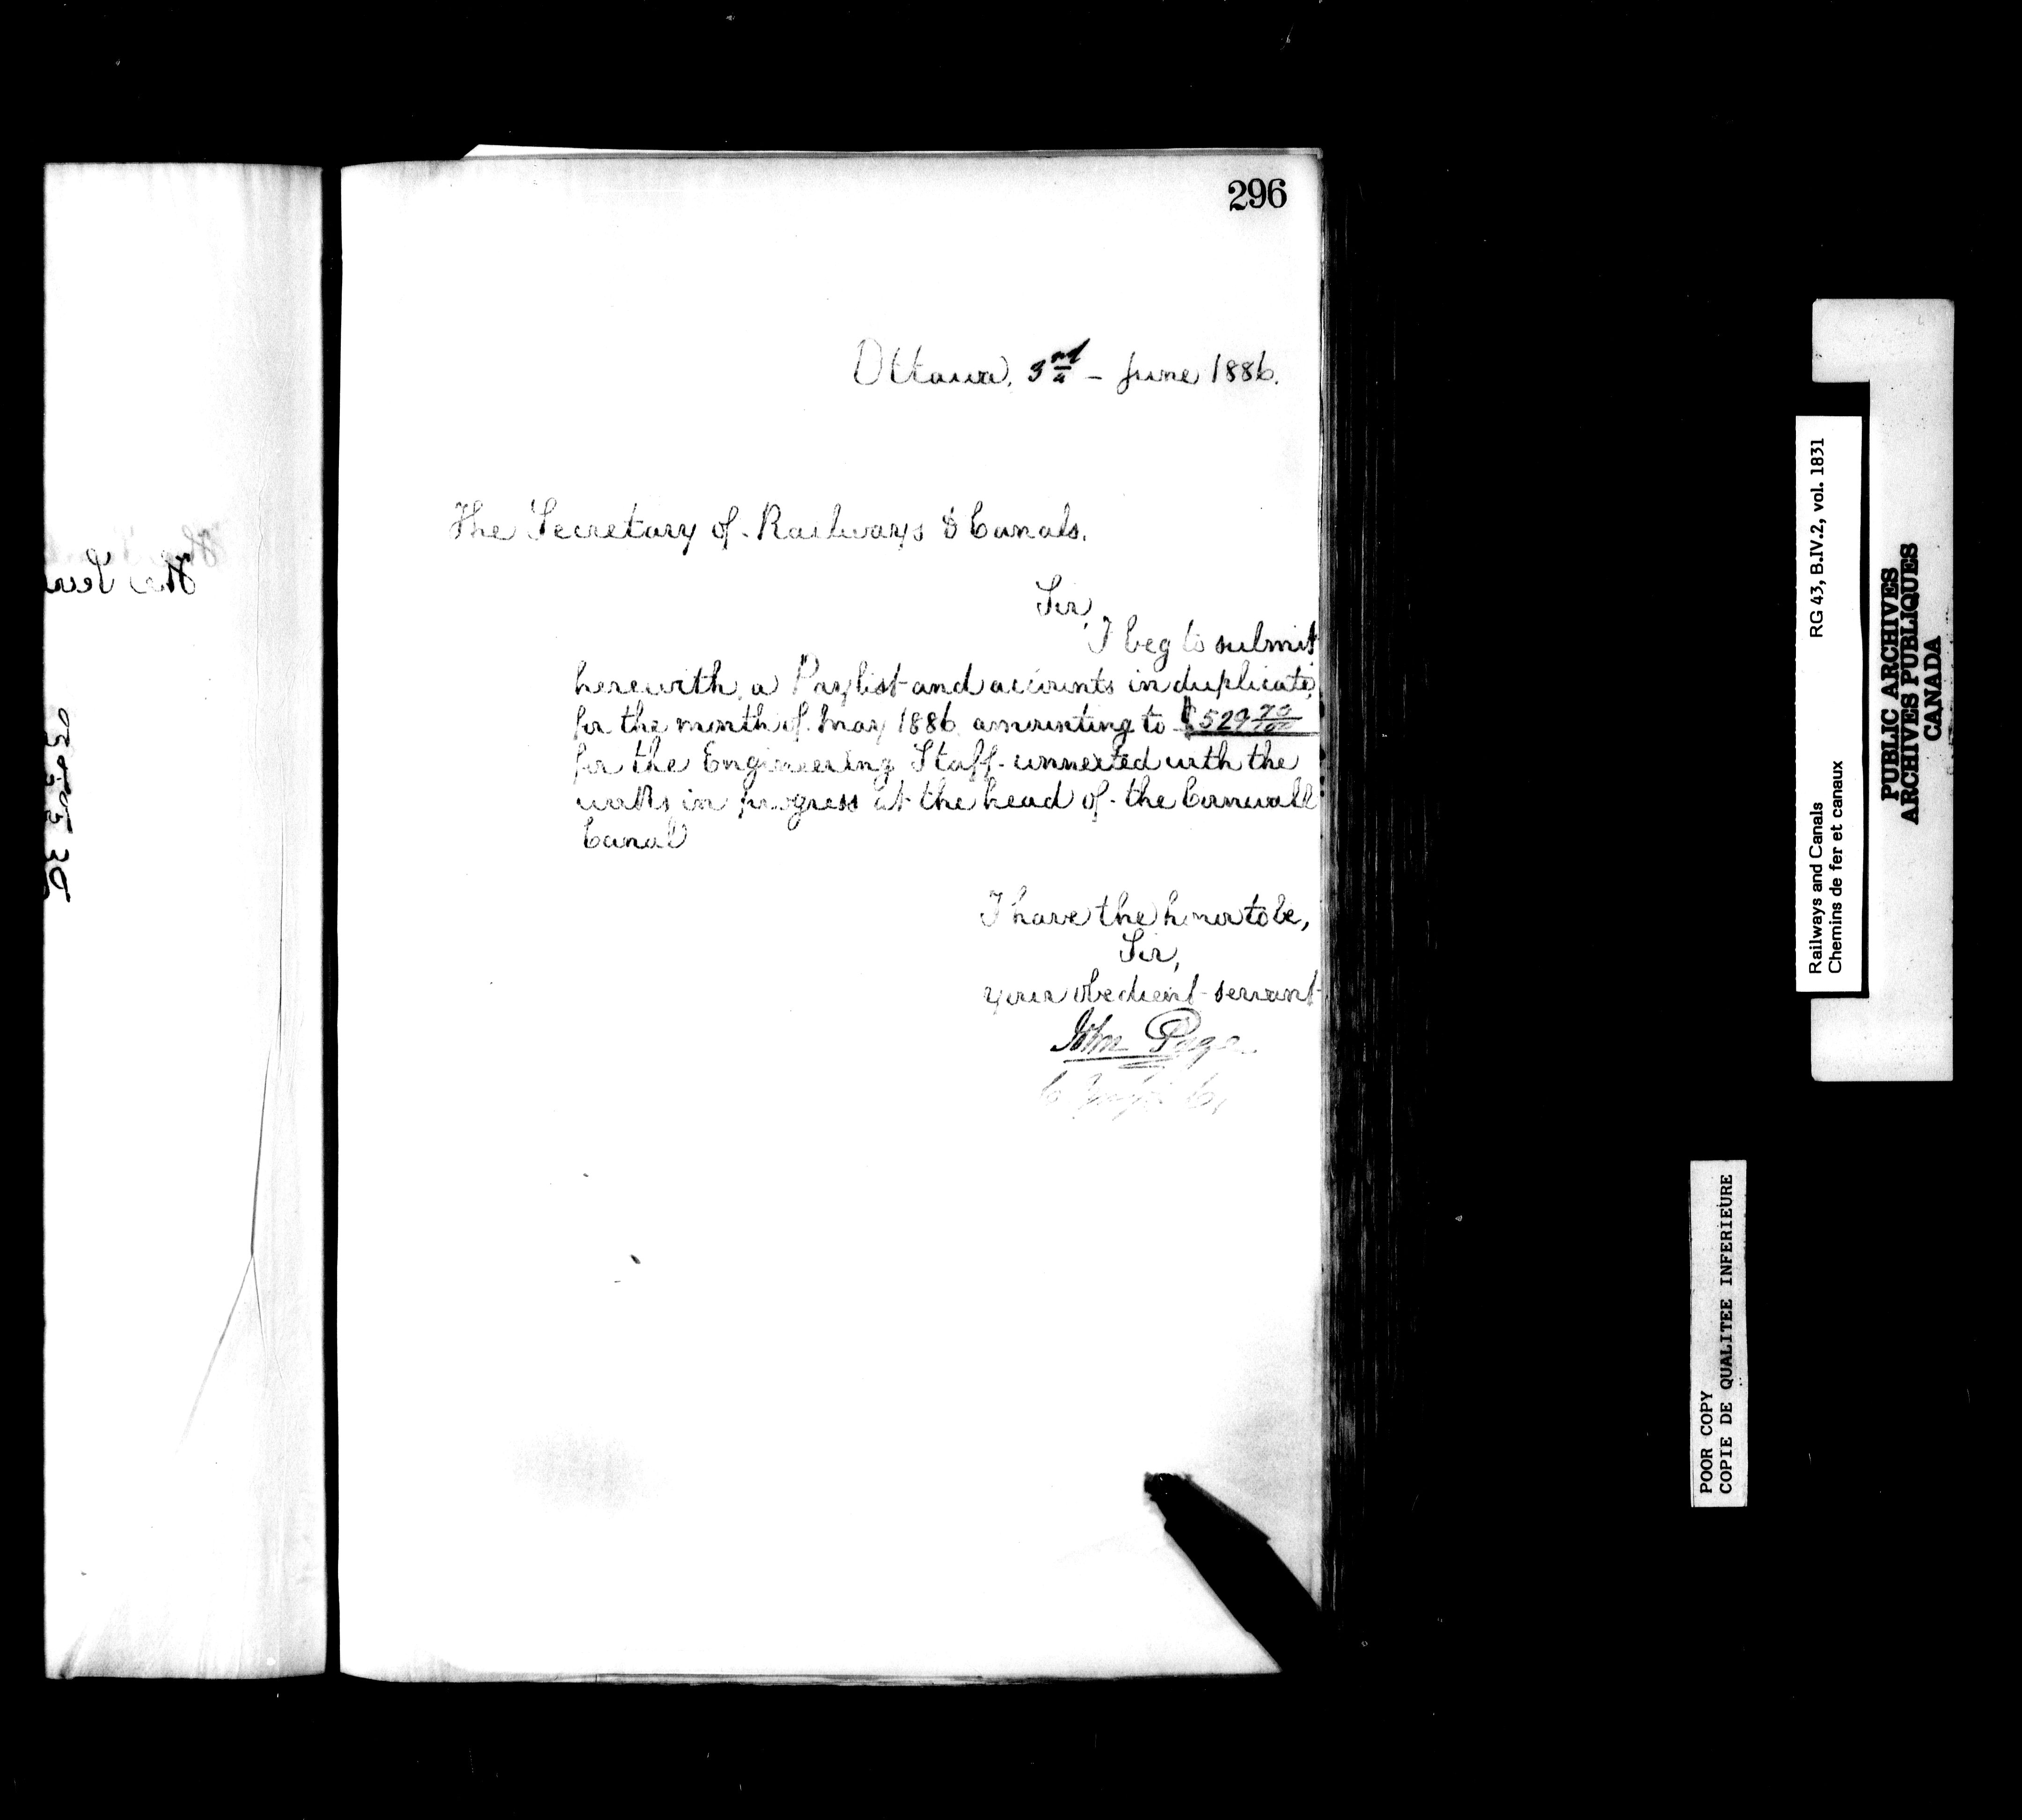 296
Ottawa, 3rd - June 1886.
The Secretary of Railways & Canals.
Sir,
I beg to submit
herewith a Paylist and accounts in duplicate
for the month of May 1886 amounting to $529 70/100
for the Engineering Staff connected with the
works in progress at the head of the Cornwall
Canal
I have the honor to be,
Sir,
your obedient servant
John Page
Railways and Canals RG 43, B.IV.2, vol. 1831
Chemins de fer et canaux
PUBLIC ARCHIVES
ARCHIVES PUBLIQUES
CANADA
POOR COPY
COPIE DE QUALITEE INFERIEURE